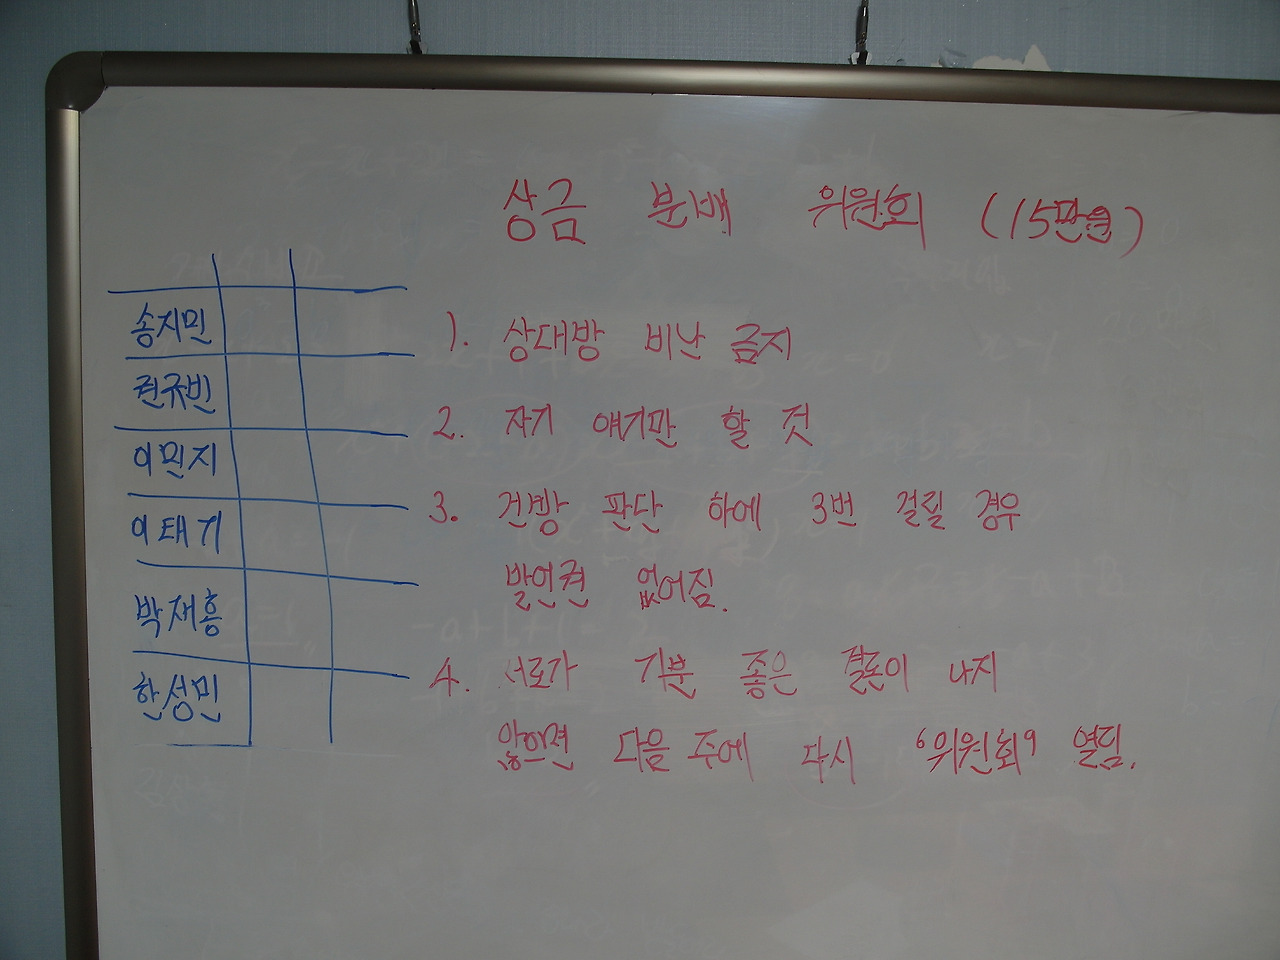 상금 분배 위원회 (15만원)
송지민
권규빈
이민지
이태기
박재흥
한성민
1. 상대방 비난 금지
2. 자기 얘기만 할 것
3. 건방 판단 하에 3번 걸릴 경우
발언권 없어짐.
4. 서로가 기분 좋은 결론이 나지
않으면 다음 주에 다시 '위원회' 열림.